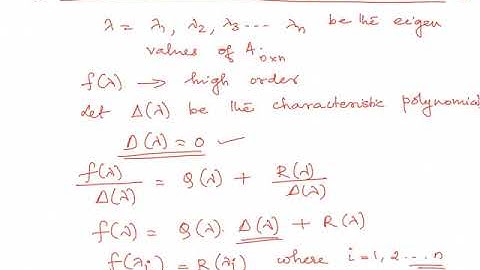 λ = λ₁, λ₂, λ₃ ---- λn be the eigen
values of Anxn
f(λ) → high order
Let Δ(λ) be the characteristic polynomial
Δ(λ) = 0 ✓
f(λ)/Δ(λ) = Q(λ) + R(λ)/Δ(λ)
f(λ) = Q(λ). Δ(λ) + R(λ)
f(λi) = R(λi) where i=1, 2 ... n